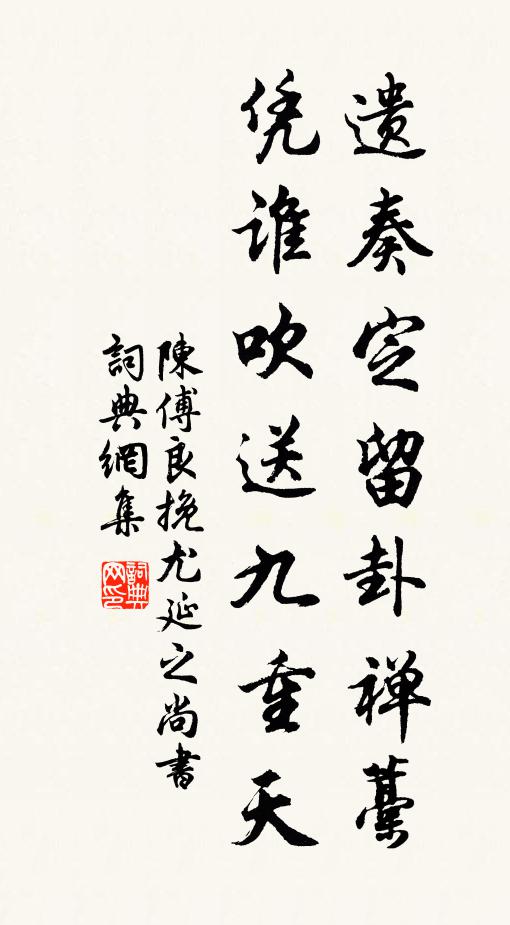 遗奏定留卦禅藁
凭谁吹送九重天
陳傅良挽尤延之尚書
詞典網集
詞典网印